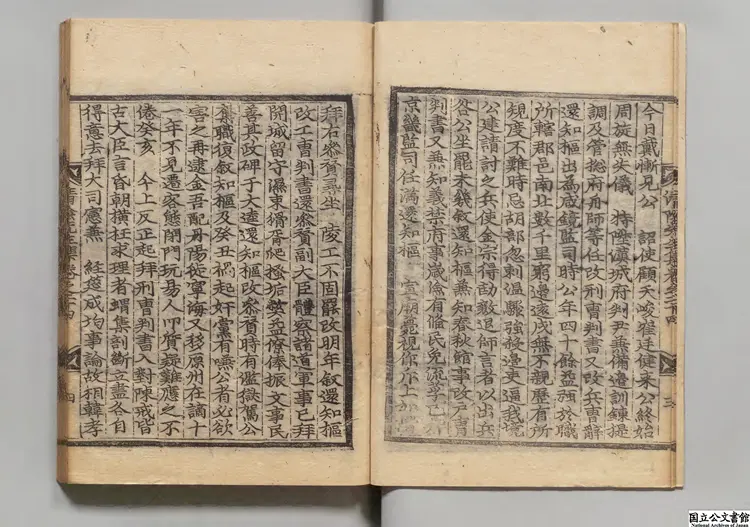 今日戴慚見公 詔使顧天峻崔廷健來公終始
周旋無失儀 特陞漢城府判尹兼備邊訓練提
調及管摠府等任改刑曹判書又改兵曹辭
還知樞出爲咸鏡監司時公年四十餘益彊於職
所轄郡邑南北數千里窮邊遠戍無不親歷有所
規度不難時忌胡部忽剌溫驟強邊吏逼我境
公建請討之兵使金宗得劾退師言者以出兵
咎公坐罷未幾敘還知樞兼知春秋館事改戶曹
判書又兼知義禁府事歲儉有條民免流
京畿監司任滿還知樞 宣廟
三
拜右參贊兼坐 陵工不固罷改明年敘還知樞
改工曹判書還參贊副大臣體察諸道軍事已拜
開城留守濕束猾胥爬垢弊益僚俸振文事民
善其政碑于大達還知樞改參贊時有濫獄公
舊職復敘知樞及癸丑禍起奸黨有嗛公者必欲
害之再逮金吾配丹陽徙寧海又移原州在謫十
一年不見遷客態閉門玩易人叩質疑難應之不
倦癸亥 今上反正起拜刑曹判書入對陳戒皆
古大臣言昏朝橫枉求理者蝟集剖斷立盡各自
得意去拜大司憲兼 經筵咸拘事論故相韓孝
四
国立公文書館
National Archives of Japan